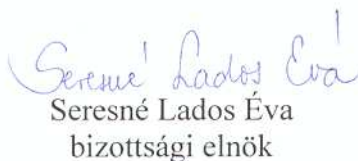 Seresné Lados Éva
Seresné Lados Éva
bizottsági elnök